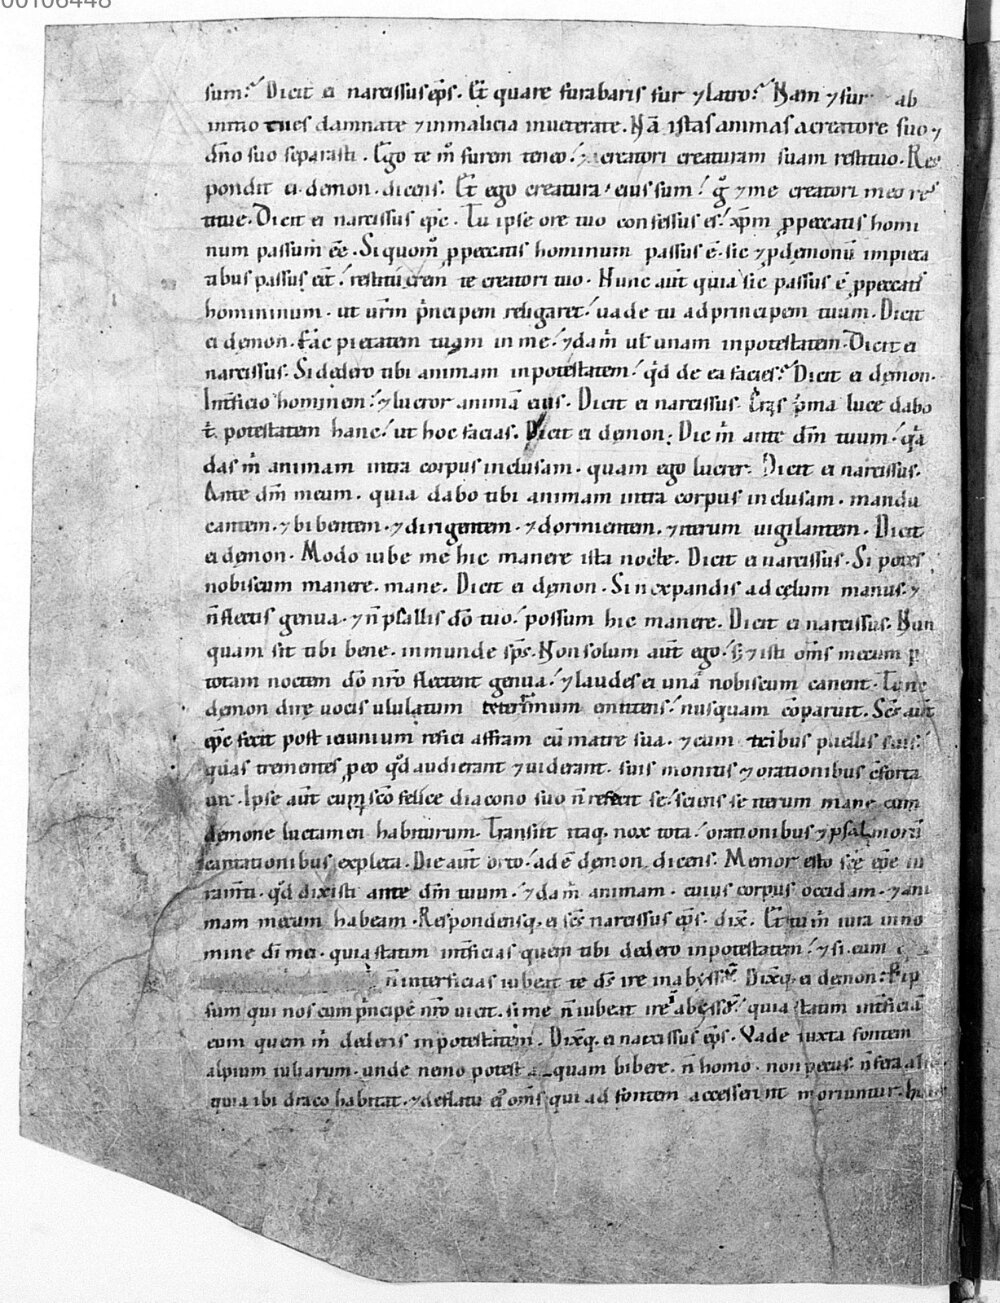 00106448
sum? Dicit ei narcissus ep̄s. Et quare furabaris fur ⁊ latro? Nam ⁊ fur ab
initio tu es damnate ⁊ in malicia inveterate. Nā istas animas a creatore suo ⁊
dn̄o suo separasti. Ego te m̊ furem teneo. creatori creaturam suam restituo. Res
pondit ei demon. dicens. Et ego creatura eius sum. g̊ ⁊ me creatori meo res
titue. Dicit ei narcissus ep̄c. Tu ipse ore tuo confessus es. xp̄m ꝓ peccatis homi
num passum ēe. Si quom̊ ꝓ peccatis hominum passus ē. sic ⁊ ꝓ demonū impieta
tibus passus eēt. restituerem te creatori tuo. Nunc aūt quia sic passus ē ꝓ peccatis
homininum. ut ur̄m p̄ncipem religaret. uade tu ad principem tuum. Dicit
ei demon. Fac pietatem tuam in me. ⁊ da m̄ ul̄ unam in potestatem. Dicit ei
narcissus. Si dedero tibi animam in potestatem. qd̄ de ea facies? Dicit ei demon.
Int̄ficio hominem. ⁊ lucror animā eius. Dicit ei narcissus. Cras p̄ma luce dabo
t̄. potestatem hanc. ut hoc facias. Dicit ei demon. Dic m̄ ante dm̄ tuum. q̄a
das m̄ animam intra corpus inclusam. quam ego lucrer. Dicit ei narcissus.
Ante dm̄ meum. quia dabo tibi animam intra corpus inclusam. mandu
cantem. ⁊ bibentem. ⁊ dirigentem. ⁊ dormientem. ⁊ iterum uigilantem. Dicit
ei demon. Modo iube me hic manere ista nocte. Dicit ei narcissus. Si potes
nobiscum manere. mane. Dicit ei demon. Si n expandis ad celum manus. ⁊
n̄ flectis genua. ⁊ n̄ psallis dō tuo. possum hic manere. Dicit ei narcissus. Nun
quam sit tibi bene. inmunde sp̄s. Non solum aūt ego. s; ⁊ isti om̄s mecum p
totam noctem dō nr̄o flectent genua. ⁊ laudes ei unā nobiscum canent. Tunc
demon dire uocis ululatum teterrimum emittens. nusquam cōparuit. Sc̄s aūt
ep̄c fecit post ieiunium refici affram cū matre sua. ⁊ cum tribus puellis suis.
quas trementes ꝓ eo qd̄ audierant ⁊ uiderant. suis monitis ⁊ orationibus cōforta
uit. Ipse aūt cum sc̄o felice diacono suo n̄ refecit se. sciens se iterum mane cum
demone luctamen habiturum. Transiit itaq. nox tota. orationibus ⁊ psalmorū
cantationibus expleta. Die aūt orto. adē demon dicens. Memor esto sc̄e ep̄e iu
ram̄ti. qd̄ dixisti ante dm̄ tuum. ⁊ da m̄ animam. cuius corpus occidam. ⁊ ani
mam mecum habeam. Respondensq. ei sc̄s narcissus ep̄s. dix̄. Et tu m̄ iura in no
mine dī mei. quia statim int̄ficias quem tibi dedero in potestatem. ⁊ si eum
n̄ interficias iubeat te ds̄ ire in abyssum. Dixq. ei demon. P ip
sum qui nos cum p̄ncipe nr̄o uicit. si me n̄ iubeat ire abysso. quia statim int̄ficiā
eum quem m̄ dederis in potestatem. Dixq. ei narcissus ep̄s. Vade iuxta fontem
alpium iuliarum. unde nemo potest aquam bibere. n̄ homo. non pecus. n̄ fera
quia ibi draco habitat. ⁊ de flatu ei' om̄s qui ad fontem accesserint moriuntur.